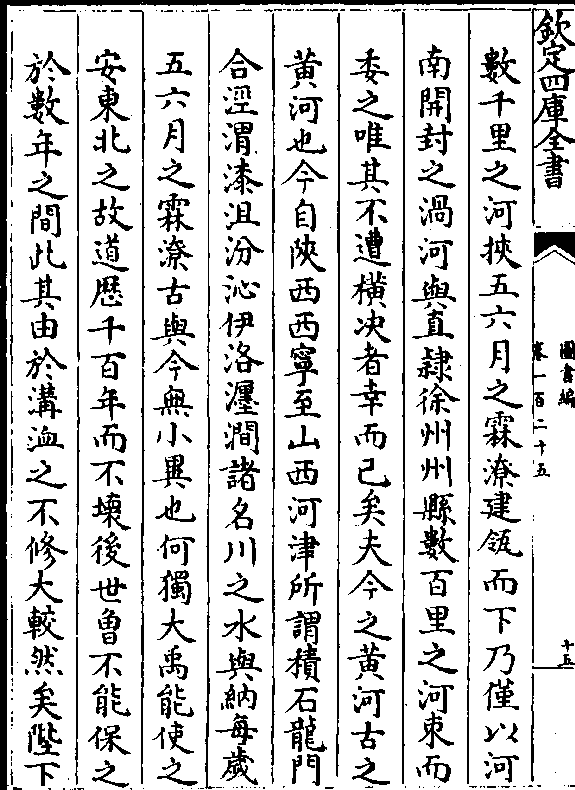 欽定四庫全書
圖書編
卷一百二十五
十五
數千里之河挾五六月之霖潦建瓴而下乃僅以河
南開封之渦河與直隸徐州州縣數百里之河束而
委之唯其不遭橫決者幸而已矣夫今之黄河古之
黄河也今自陜西西寧至山西河津所謂積石龍門
合涇渭漆沮汾沁伊洛瀍澗諸名川之水與納每歲
五六月之霖潦古與今無小異也何獨大禹能使之
安東北之故道歴千百年而不壊後世曾不能保之
於數年之間此其由於溝洫之不修大較然矣陛下